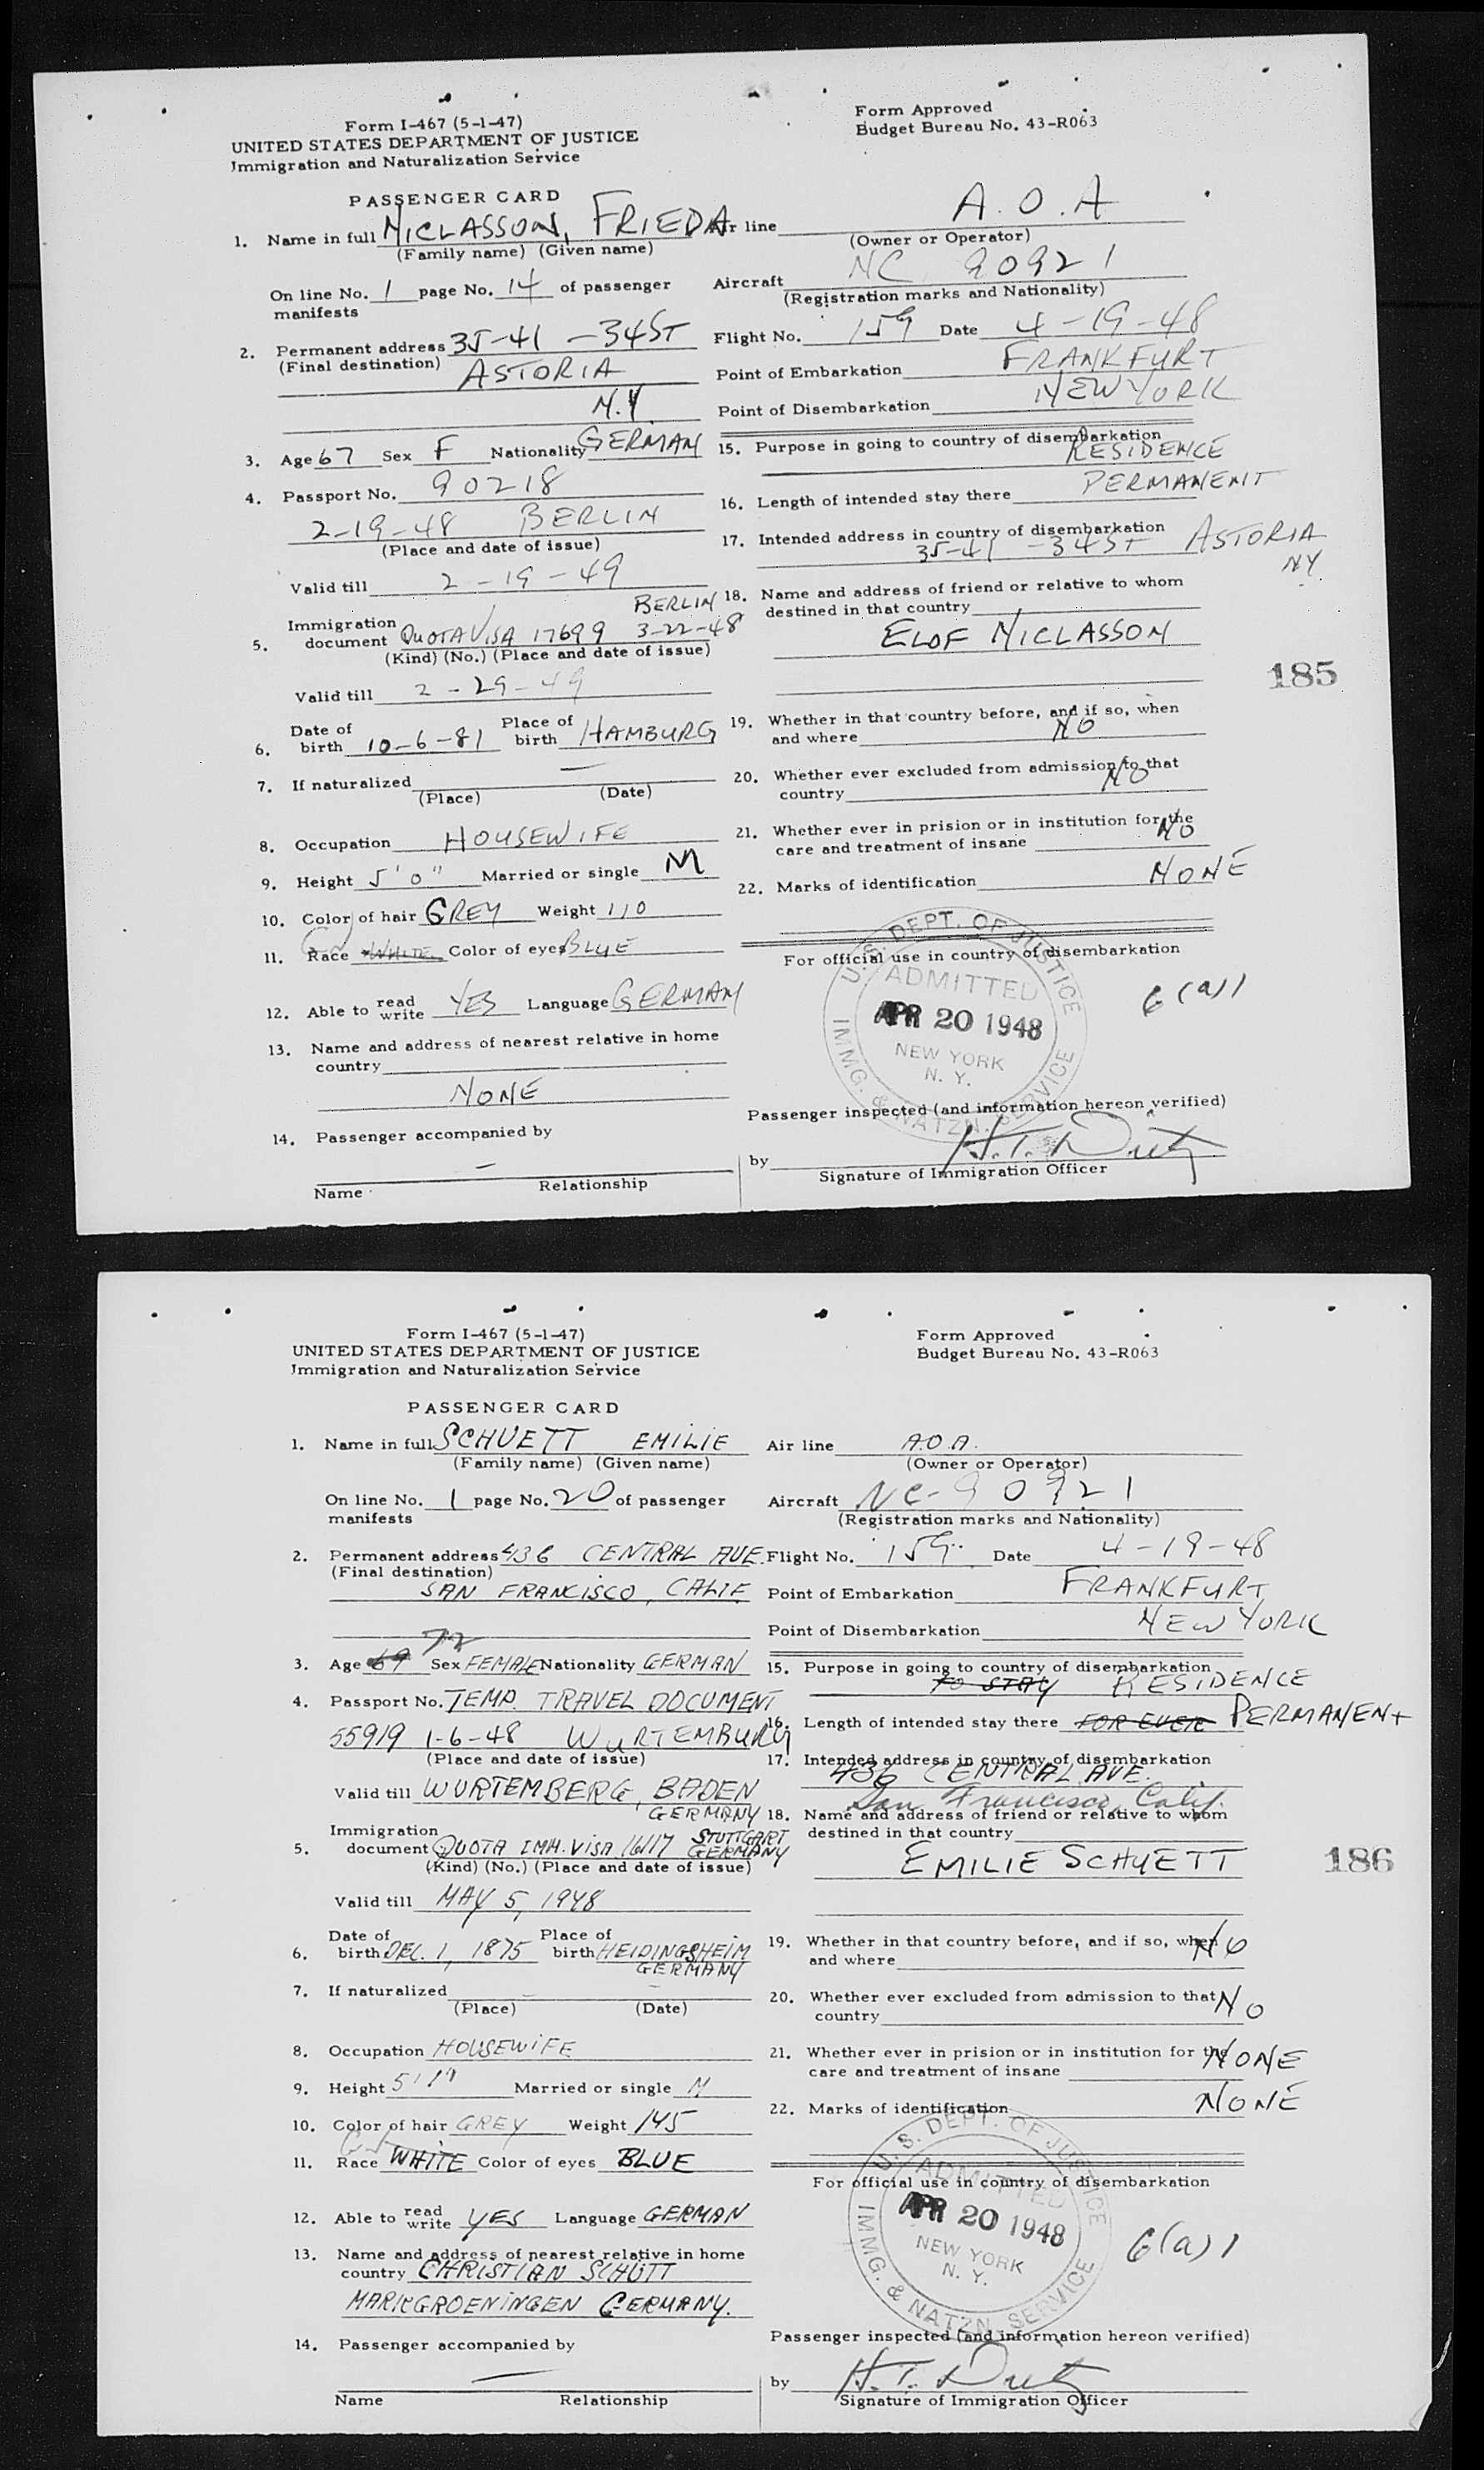 Form I-467 (5-1-47)
UNITED STATES DEPARTMENT OF JUSTICE
Immigration and Naturalization Service
Form Approved
Budget Bureau No. 43-R063
PASSENGER CARD
1. Name in full NICLASSON, FRIEDA
(Family name) (Given name)
On line No. 1 page No. 14 of passenger
manifests
2. Permanent address 35-41 -34 ST
(Final destination) ASTORIA
N.Y.
3. Age 67 Sex F Nationality GERMAN
4. Passport No. 90218
2-19-48 BERLIN
(Place and date of issue)
Valid till 2-19-49
BERLIN
5. Immigration
document QUOTA VISA 17699 3-22-48
(Kind) (No.) (Place and date of issue)
Valid till 2-29-49
6. Date of birth 10-6-81 Place of birth HAMBURG
7. If naturalized —
(Place) (Date)
8. Occupation HOUSEWIFE
9. Height 5'0" Married or single M
10. Color of hair GREY Weight 110
11. Race WHITE Color of eyes BLUE
12. Able to read write YES Language GERMAN
13. Name and address of nearest relative in home
country
NONE
14. Passenger accompanied by
—
Name Relationship
Air line A.O.A
(Owner or Operator)
Aircraft NC 90921
(Registration marks and Nationality)
Flight No. 159 Date 4-19-48
Point of Embarkation FRANKFURT
Point of Disembarkation NEW YORK
15. Purpose in going to country of disembarkation
RESIDENCE
16. Length of intended stay there PERMANENT
17. Intended address in country of disembarkation
35-41 -34 ST ASTORIA
NY
18. Name and address of friend or relative to whom
destined in that country
ELOF NICLASSON
19. Whether in that country before, and if so, when
and where NO
20. Whether ever excluded from admission to that
country NO
21. Whether ever in prision or in institution for the
care and treatment of insane NO
22. Marks of identification NONE
For official use in country of disembarkation
U.S. DEPT. OF JUSTICE
ADMITTED
APR 20 1948
NEW YORK
N. Y.
IMMG. & NATZN. SERVICE
6(a)1
Passenger inspected (and information hereon verified)
by
Signature of Immigration Officer
185
Form I-467 (5-1-47)
UNITED STATES DEPARTMENT OF JUSTICE
Immigration and Naturalization Service
Form Approved
Budget Bureau No. 43-R063
PASSENGER CARD
1. Name in full SCHUETT EMILIE
(Family name) (Given name)
On line No. 1 page No. 20 of passenger
manifests
2. Permanent address 436 CENTRAL AVE.
(Final destination)
SAN FRANCISCO, CALIF.
72
3. Age 69 Sex FEMALE Nationality GERMAN
4. Passport No. TEMP. TRAVEL DOCUMENT
55919 1-6-48 WURTEMBURG
(Place and date of issue)
Valid till WURTEMBERG, BADEN
GERMANY
5. Immigration
document QUOTA IMM. VISA 16117 STUTTGART GERMANY
(Kind) (No.) (Place and date of issue)
Valid till MAY 5, 1948
6. Date of birth DEC. 1, 1875 Place of birth HEIDINGSHEIM
GERMANY
7. If naturalized —
(Place) (Date)
8. Occupation HOUSEWIFE
9. Height 5'1" Married or single M
10. Color of hair GREY Weight 145
11. Race WHITE Color of eyes BLUE
12. Able to read write YES Language GERMAN
13. Name and address of nearest relative in home
country CHRISTIAN SCHÜTT
MARKGROENINGEN GERMANY.
14. Passenger accompanied by
—
Name Relationship
Air line A.O.A.
(Owner or Operator)
Aircraft NC-90921
(Registration marks and Nationality)
Flight No. 159 Date 4-19-48
Point of Embarkation FRANKFURT
Point of Disembarkation NEW YORK
15. Purpose in going to country of disembarkation
TO STAY RESIDENCE
16. Length of intended stay there FOR EVER PERMANENT
17. Intended address in country of disembarkation
436 CENTRAL AVE.
San Francisco, Calif.
18. Name and address of friend or relative to whom
destined in that country
EMILIE SCHUETT
19. Whether in that country before, and if so, when
and where NO
20. Whether ever excluded from admission to that
country NO
21. Whether ever in prision or in institution for the
care and treatment of insane NONE
22. Marks of identification NONE
For official use in country of disembarkation
U.S. DEPT. OF JUSTICE
ADMITTED
APR 20 1948
NEW YORK
N. Y.
IMMG. & NATZN. SERVICE
6(a)1
Passenger inspected (and information hereon verified)
by
Signature of Immigration Officer
186